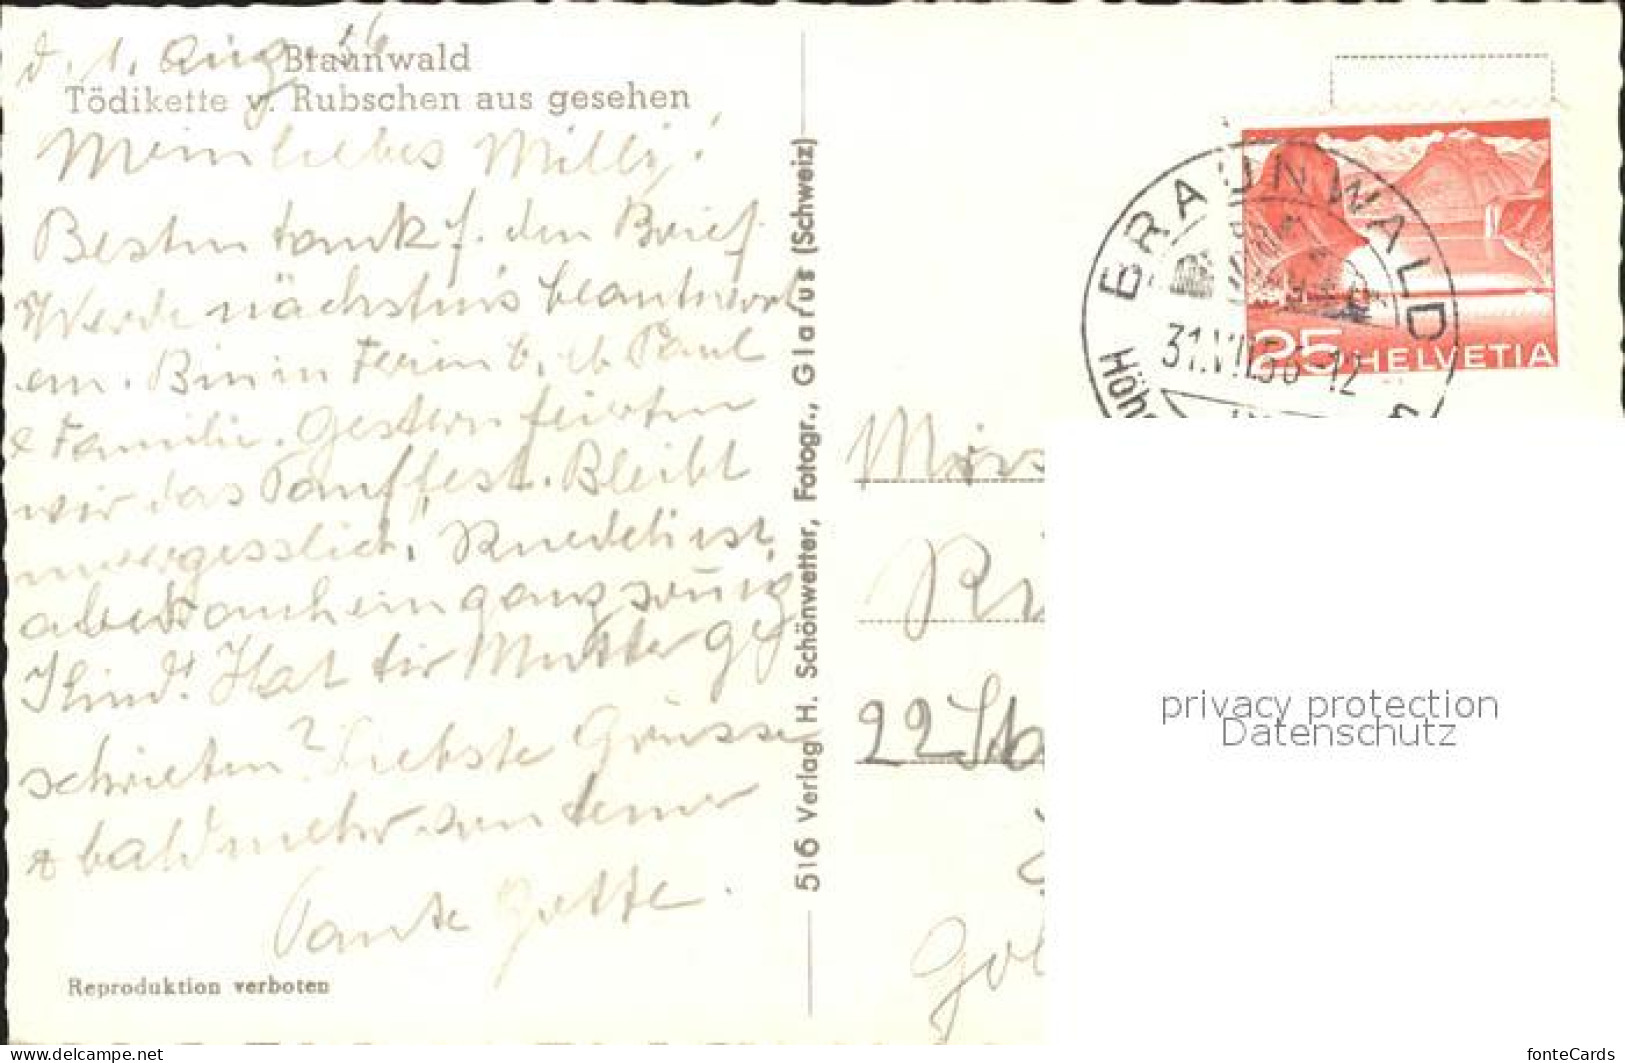 d. 1. Aug. 56
Braunwald
Tödikette v. Rubschen aus gesehen
Mein liebes Milly!
Besten tank f. den Brief
Werde nächstens beantwort
en. Bin in Ferien b. Paul
& Familie. Gestern feierten
wir das Tauffest. Bleibt
unvergesslich! Ruedeli ist
aber auch ein ganz
Kind! Hat dir Mutter ge
schrieben? Liebste Grüsse
& bald mehr von deiner
Tante Gotte.
Reproduktion verboten
516 Verlag H. Schönwetter, Fotogr., Glarus (Schweiz)
BRAUNWALD
31.VII.56-12
Höh
25 HELVETIA
Miss
Ri
22 St
Gol
privacy protection
Datenschutz
https://www.delcampe.net
fonteCards